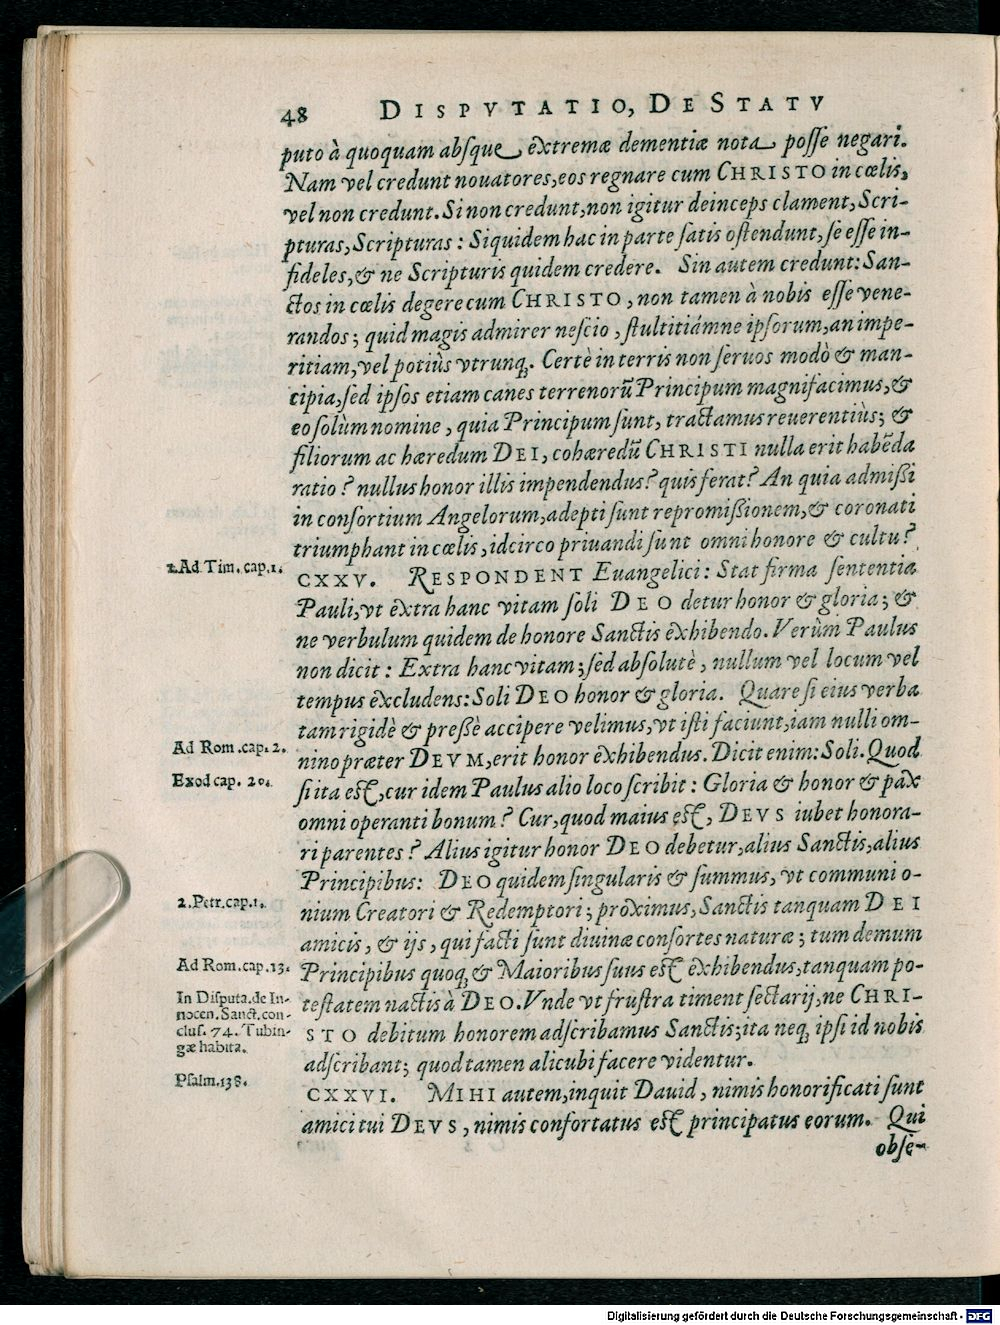 48 DISPVTATIO, DE STATV
puto à quoquam absque extremæ dementiæ nota posse negari.
Nam vel credunt nouatores, eos regnare cum CHRISTO in cœlis,
vel non credunt. Si non credunt, non igitur deinceps clament, Scri-
pturas, Scripturas: Siquidem hac in parte satis ostendunt, se esse in-
fideles, & ne Scripturis quidem credere. Sin autem credunt: San-
ctos in cœlis degere cum CHRISTO, non tamen à nobis esse vene-
randos; quid magis admirer nescio, stultitiámne ipsorum, an impe-
ritiam, vel potiùs vtrunq́. Certè in terris non seruos modò & man-
cipia, sed ipsos etiam canes terrenorũ Principum magnifacimus, &
eo solùm nomine, quia Principum sunt, tractamus reuerentiùs; &
filiorum ac hæredum DEI, cohæredũ CHRISTI nulla erit habẽda
ratio? nullus honor illis impendendus? quis ferat? An quia admißi
in consortium Angelorum, adepti sunt repromißionem, & coronati
triumphant in cœlis, idcirco priuandi sunt omni honore & cultu?
2. Ad Tim. cap. 1.
CXXV. RESPONDENT Euangelici: Stat firma sententia
Pauli, vt extra hanc vitam soli DEO detur honor & gloria; &
ne verbulum quidem de honore Sanctis exhibendo. Verùm Paulus
non dicit: Extra hanc vitam; sed absolutè, nullum vel locum vel
tempus excludens: Soli DEO honor & gloria. Quare si eius verba
tam rigidè & preßè accipere velimus, vt isti faciunt, iam nulli om-
Ad Rom. cap. 2.
nino præter DEVM, erit honor exhibendus. Dicit enim: Soli. Quod
Exod cap. 20.
si ita est, cur idem Paulus alio loco scribit: Gloria & honor & pax
omni operanti bonum? Cur, quod maius est, DEVS iubet honora-
ri parentes? Alius igitur honor DEO debetur, alius Sanctis, alius
Principibus: DEO quidem singularis & summus, vt communi o-
2. Petr. cap. 1.
nium Creatori & Redemptori; proximus, Sanctis tanquam DEI
amicis, & ijs, qui facti sunt diuinæ consortes naturæ; tum demum
Ad Rom. cap. 13.
Principibus quoq́ & Maioribus suus est exhibendus, tanquam po-
In Disputa. de In-
nocen. Sanct. con-
clus. 74. Tubin-
gæ habita.
testatem nactis à DEO. Vnde vt frustra timent sectarij, ne CHRI-
STO debitum honorem adscribamus Sanctis; ita neq́ ipsi id nobis
adscribant; quod tamen alicubi facere videntur.
Psalm. 138.
CXXVI. MIHI autem, inquit Dauid, nimis honorificati sunt
amici tui DEVS, nimis confortatus est principatus eorum. Qui
obse-
Digitalisierung gefördert durch die Deutsche Forschungsgemeinschaft - DFG